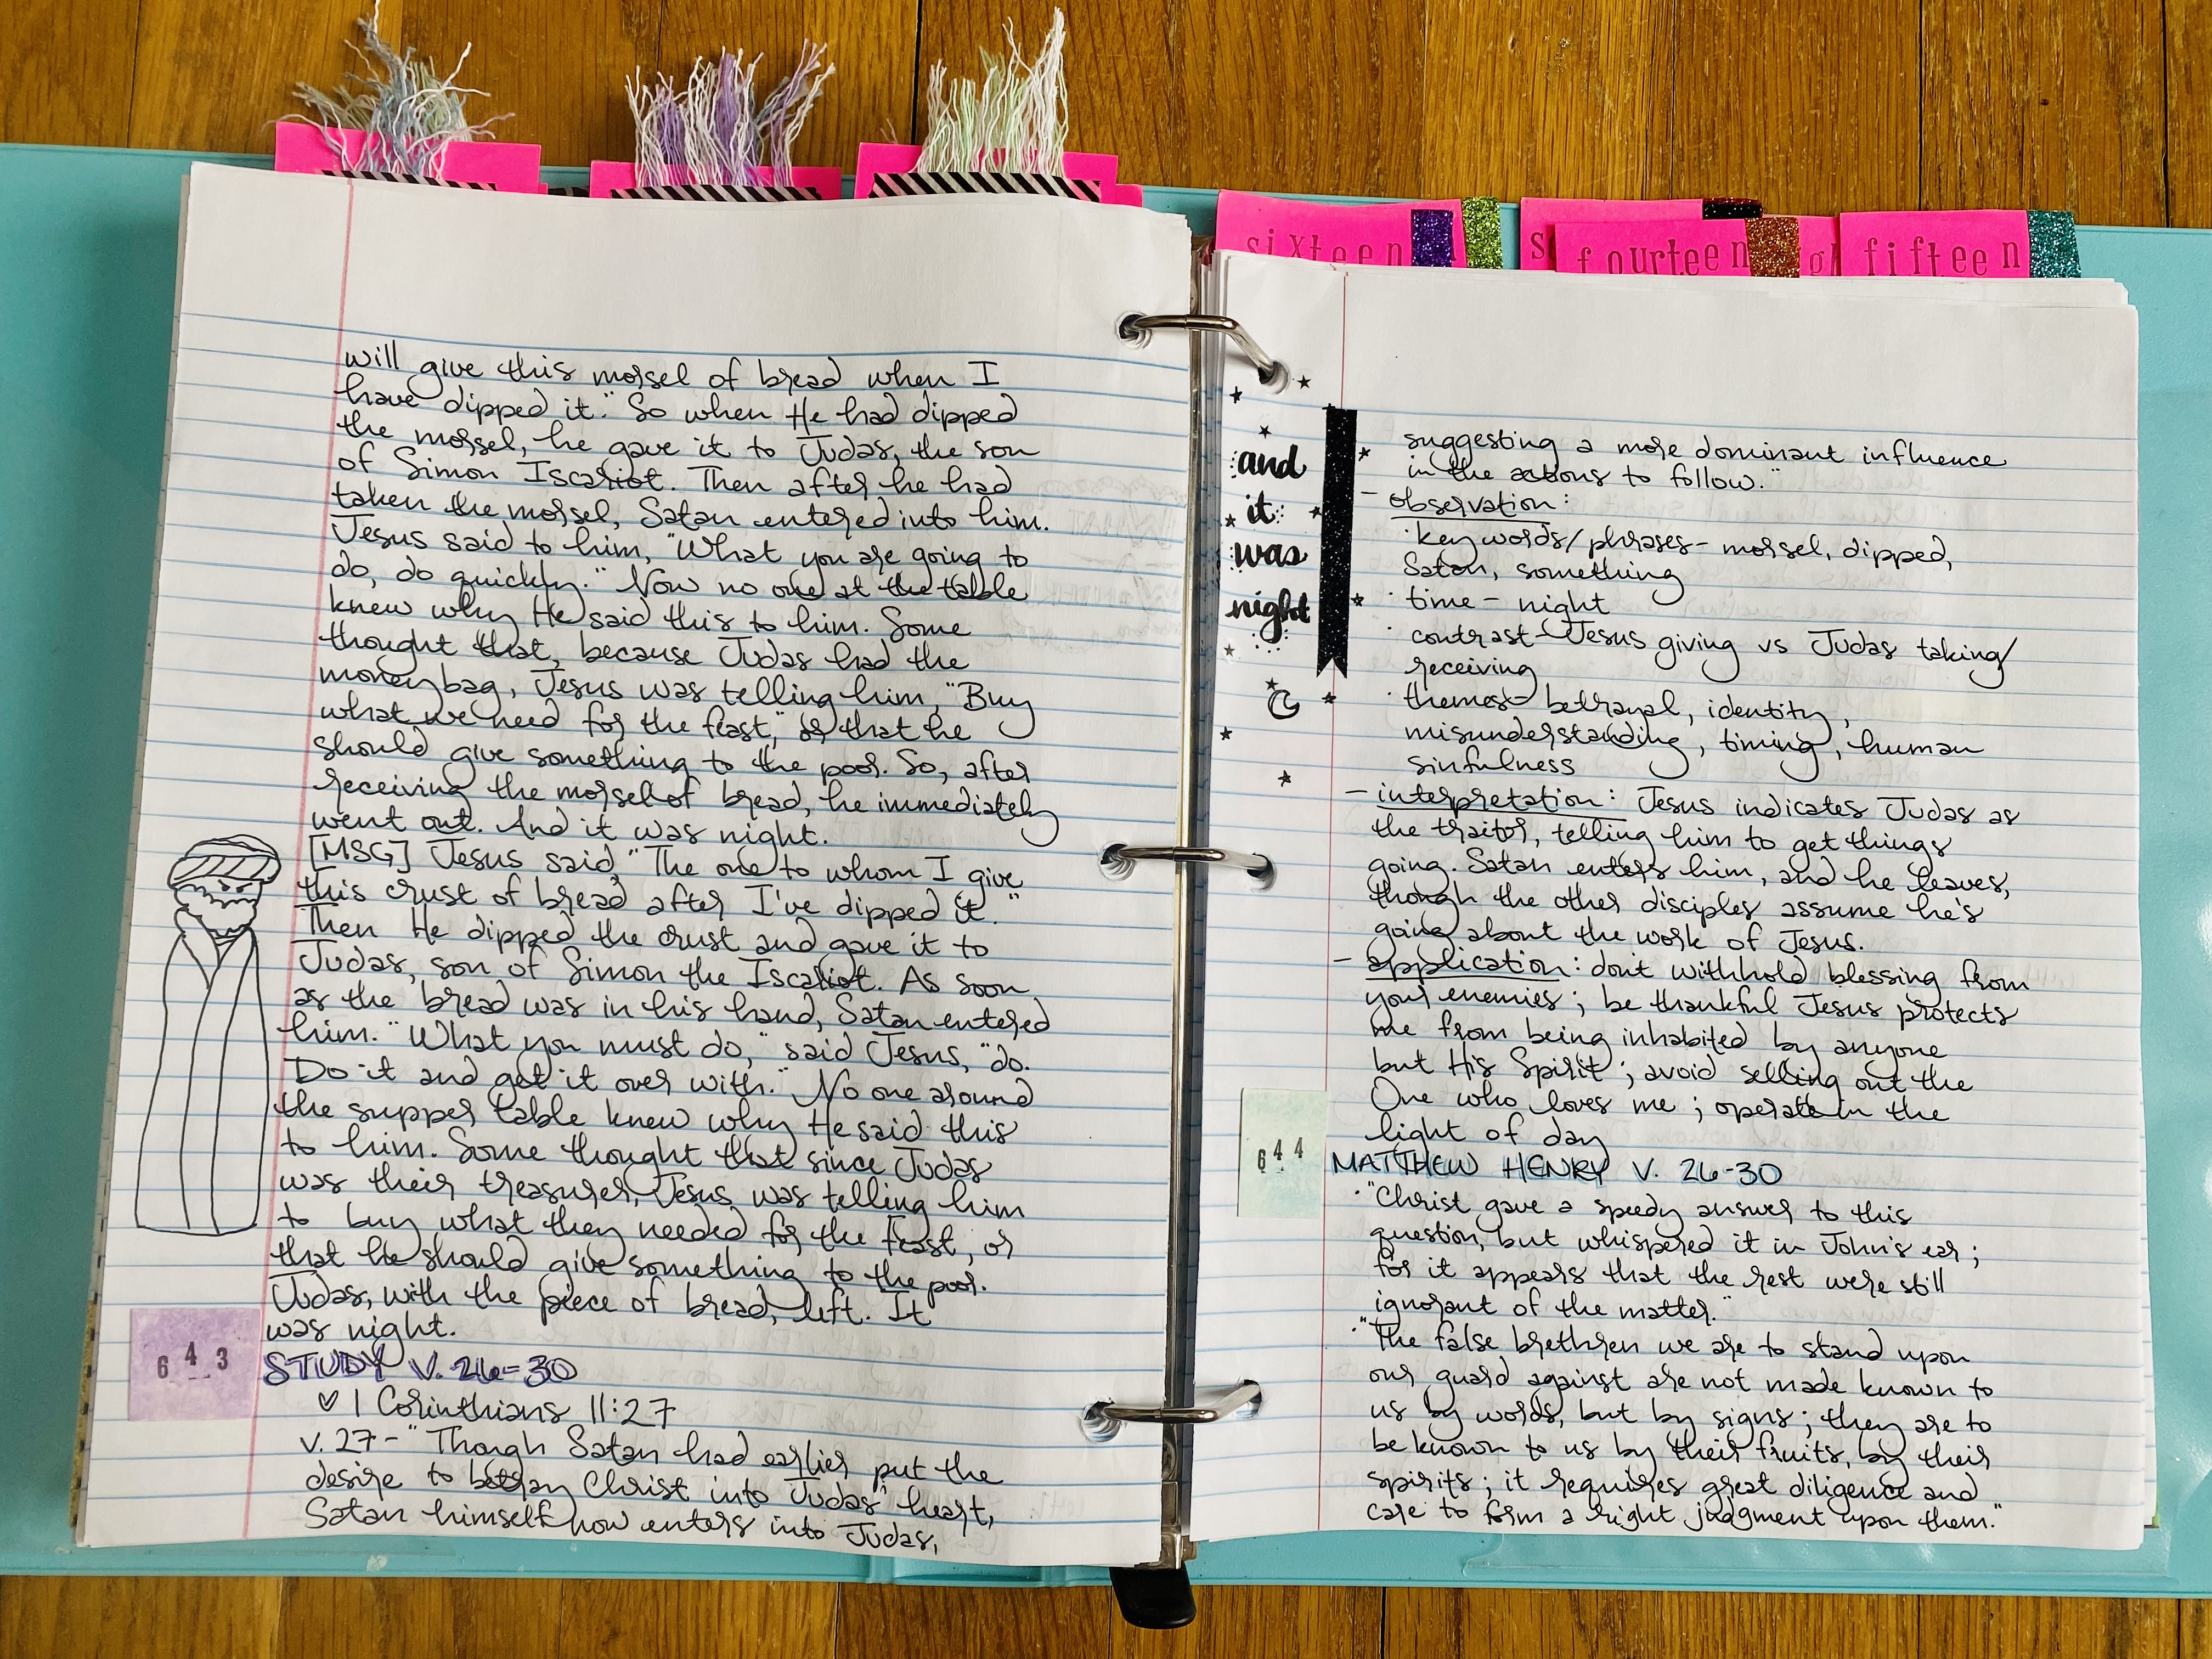 sixteen
fourteen
fifteen
will give this morsel of bread when I
have dipped it." So when He had dipped
the morsel, he gave it to Judas, the son
of Simon Iscariot. Then after he had
taken the morsel, Satan entered into him.
Jesus said to him, "What you are going to
do, do quickly." Now no one at the table
knew why He said this to him. Some
thought that, because Judas had the
moneybag, Jesus was telling him, "Buy
what we need for the feast," or that he
should give something to the poor. So, after
receiving the morsel of bread, he immediately
went out. And it was night.
[MSG] Jesus said, "The one to whom I give
this crust of bread after I've dipped it."
Then He dipped the crust and gave it to
Judas, son of Simon the Iscariot. As soon
as the bread was in his hand, Satan entered
him. "What you must do," said Jesus, "do.
Do it and get it over with." No one around
the supper table knew why He said this
to him. Some thought that since Judas
was their treasurer, Jesus was telling him
to buy what they needed for the feast, or
that he should give something to the poor.
Judas, with the piece of bread, left. It
was night.
643
STUDY V. 26-30
♡ 1 Corinthians 11:27
v. 27 - "Though Satan had earlier put the
desire to betray Christ into Judas' heart,
Satan himself now enters into Judas,
and
it
was
night
suggesting a more dominant influence
in the actions to follow."
- observation:
· key words/phrases - morsel, dipped,
Satan, something
· time - night
· contrast - Jesus giving vs Judas taking/
receiving
· themes - betrayal, identity,
misunderstanding, timing, human
sinfulness
- interpretation: Jesus indicates Judas as
the traitor, telling him to get things
going. Satan enters him, and he leaves,
though the other disciples assume he's
going about the work of Jesus.
- application: don't withhold blessing from
your enemies; be thankful Jesus protects
me from being inhabited by anyone
but His Spirit; avoid selling out the
One who loves me; operate in the
light of day
644
MATTHEW HENRY V. 26-30
· "Christ gave a speedy answer to this
question, but whispered it in John's ear;
for it appears that the rest were still
ignorant of the matter."
· "The false brethren we are to stand upon
our guard against are not made known to
us by words, but by signs; they are to
be known to us by their fruits, by their
spirits; it requires great diligence and
care to form a right judgment upon them."